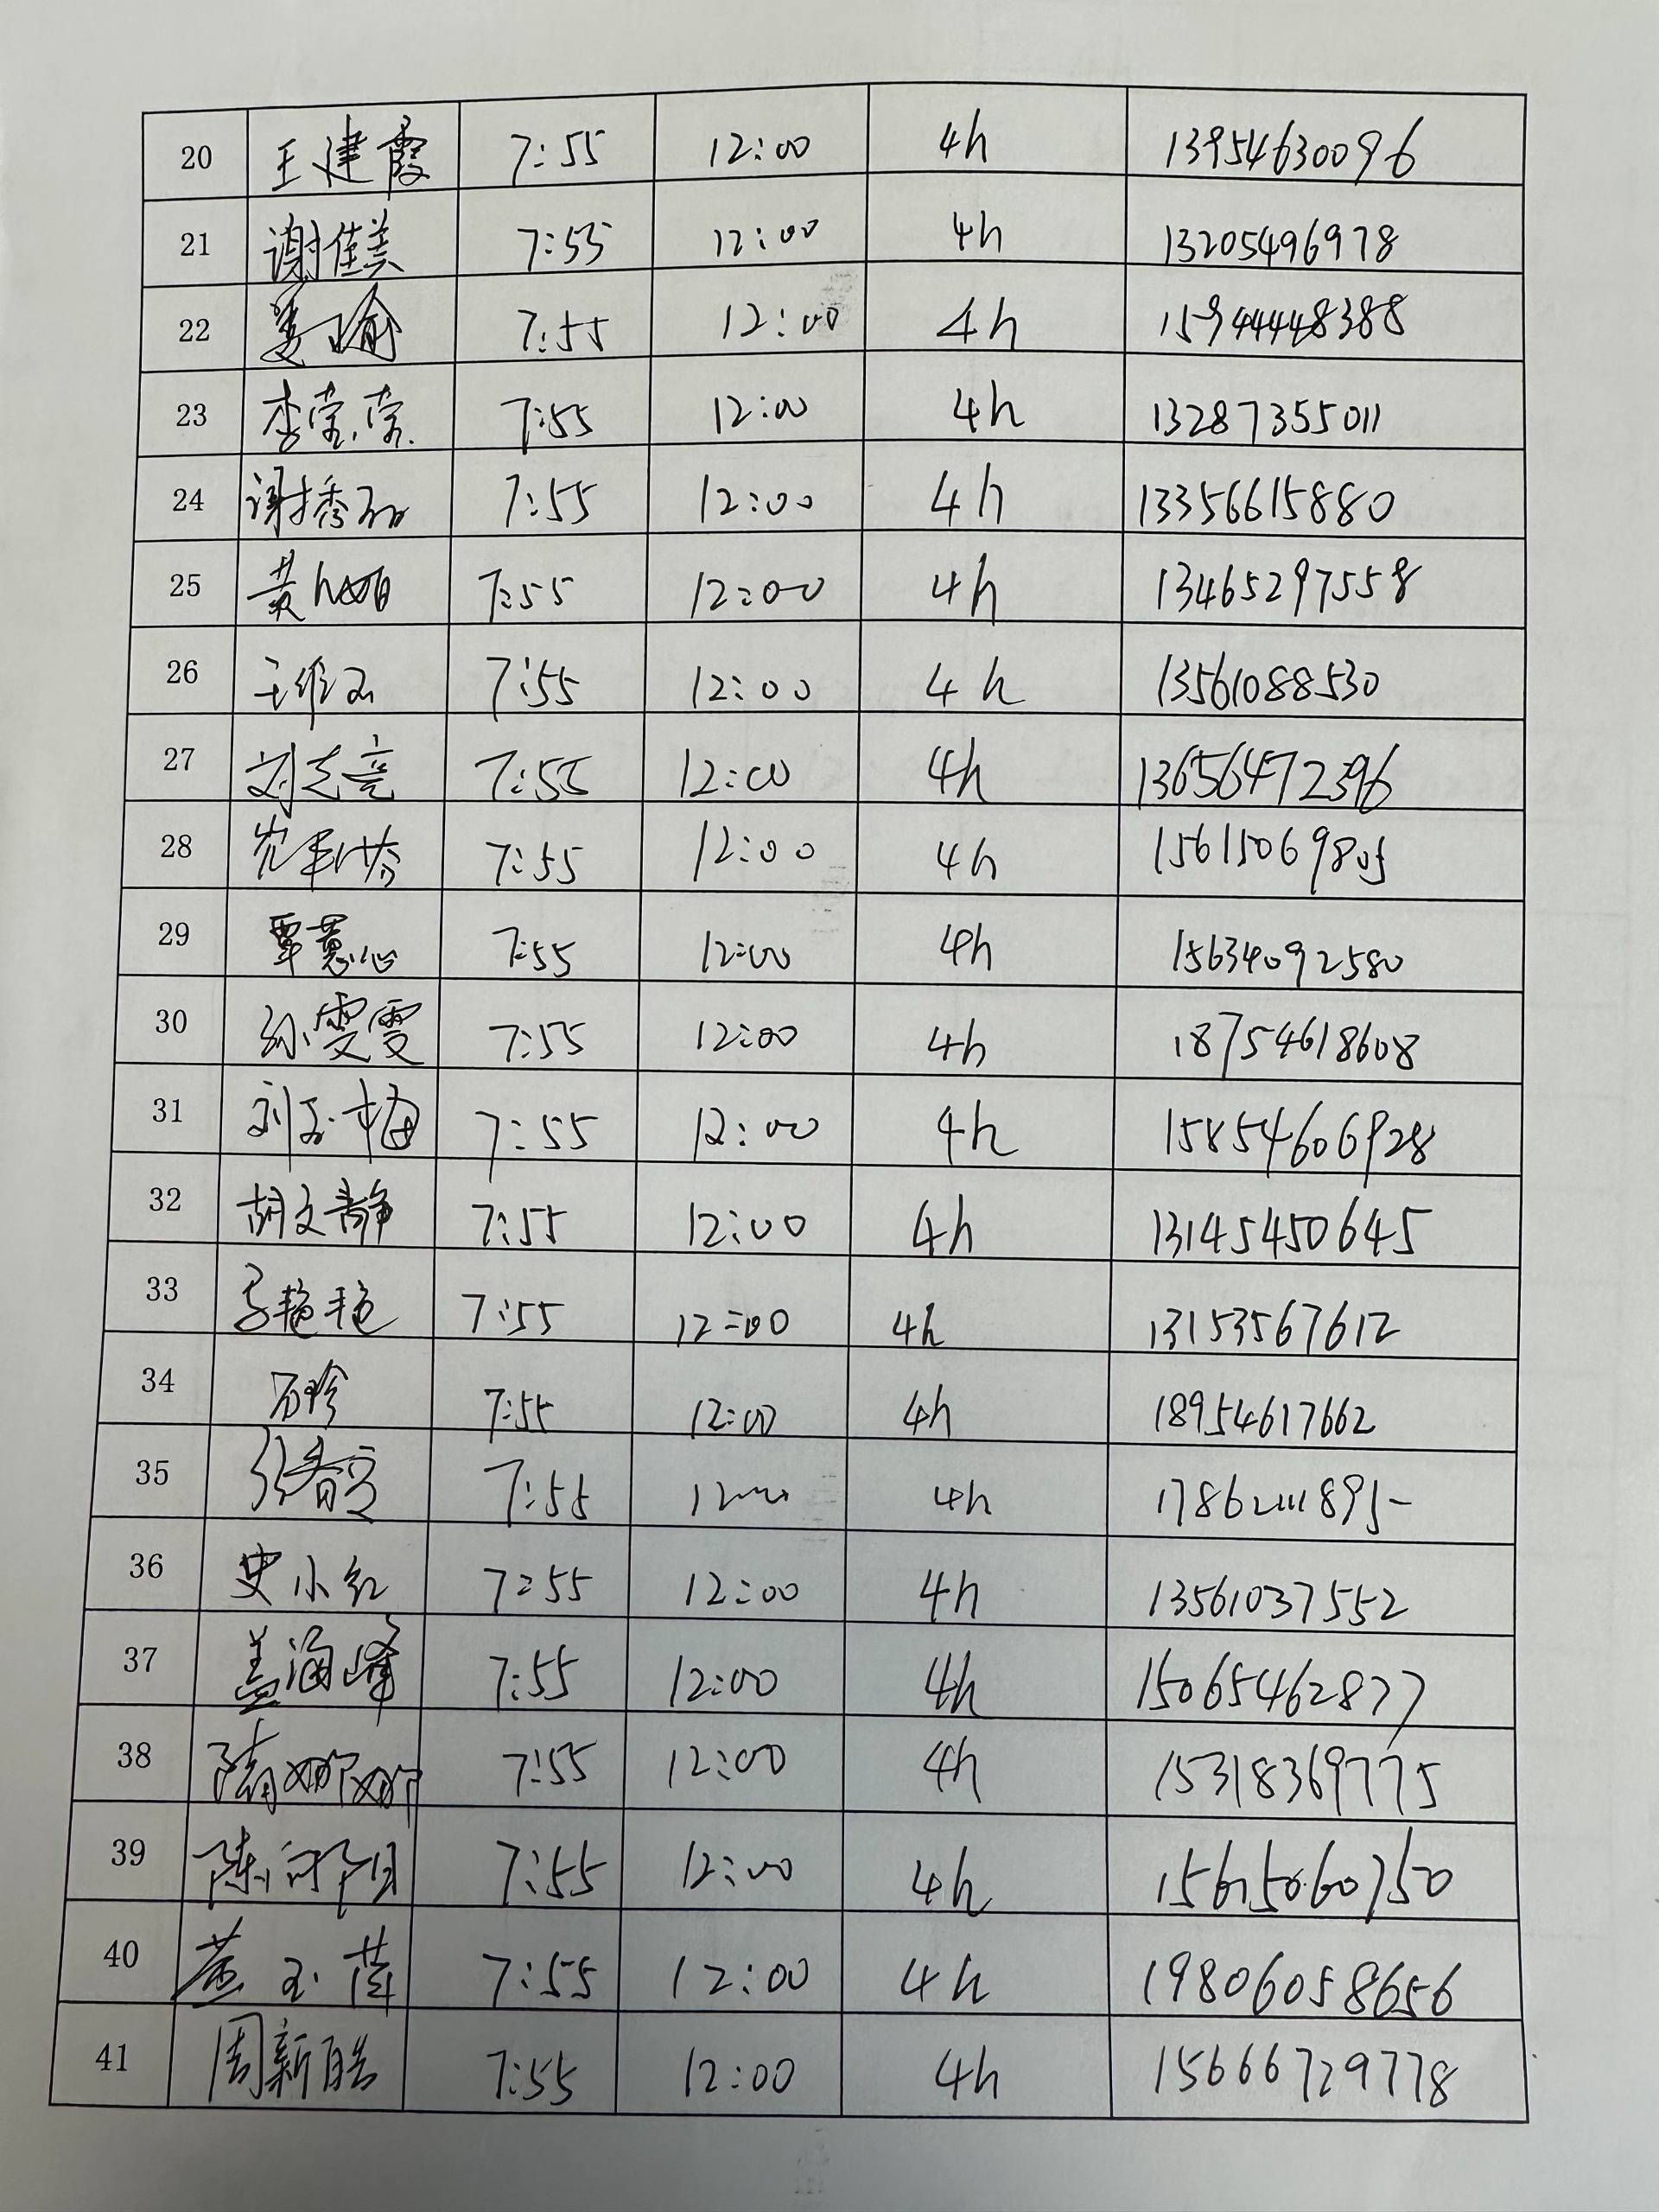 20 王建霞 7:55 12:00 4h 13954630096
21 谢佳美 7:55 12:00 4h 13205496978
22 姜瑜 7:55 12:00 4h 15944448388
23 李荣荣 7:55 12:00 4h 13287355011
24 7:55 12:00 4h 13356615880
25 黄 7:55 12:00 4h 13465297558
26 王 7:55 12:00 4h 13561088530
27 刘志亮 7:55 12:00 4h 13656472396
28 7:55 12:00 4h 15615069805
29 覃慧心 7:55 12:00 4h 15634092580
30 孙雯雯 7:55 12:00 4h 18754618608
31 刘玉梅 7:55 12:00 4h 15854606928
32 胡文静 7:55 12:00 4h 13145450645
33 艳艳 7:55 12:00 4h 13153567612
34 石珍 7:55 12:00 4h 18954617662
35 7:55 4h
36 史小红 7:55 12:00 4h 13561037552
37 盖海峰 7:55 12:00 4h 15065462877
38 隋娜娜 7:55 12:00 4h 15318369775
39 陈向阳 7:55 12:00 4h 15615060750
40 7:55 12:00 4h 19806058656
41 周新皓 7:55 12:00 4h 15666729778